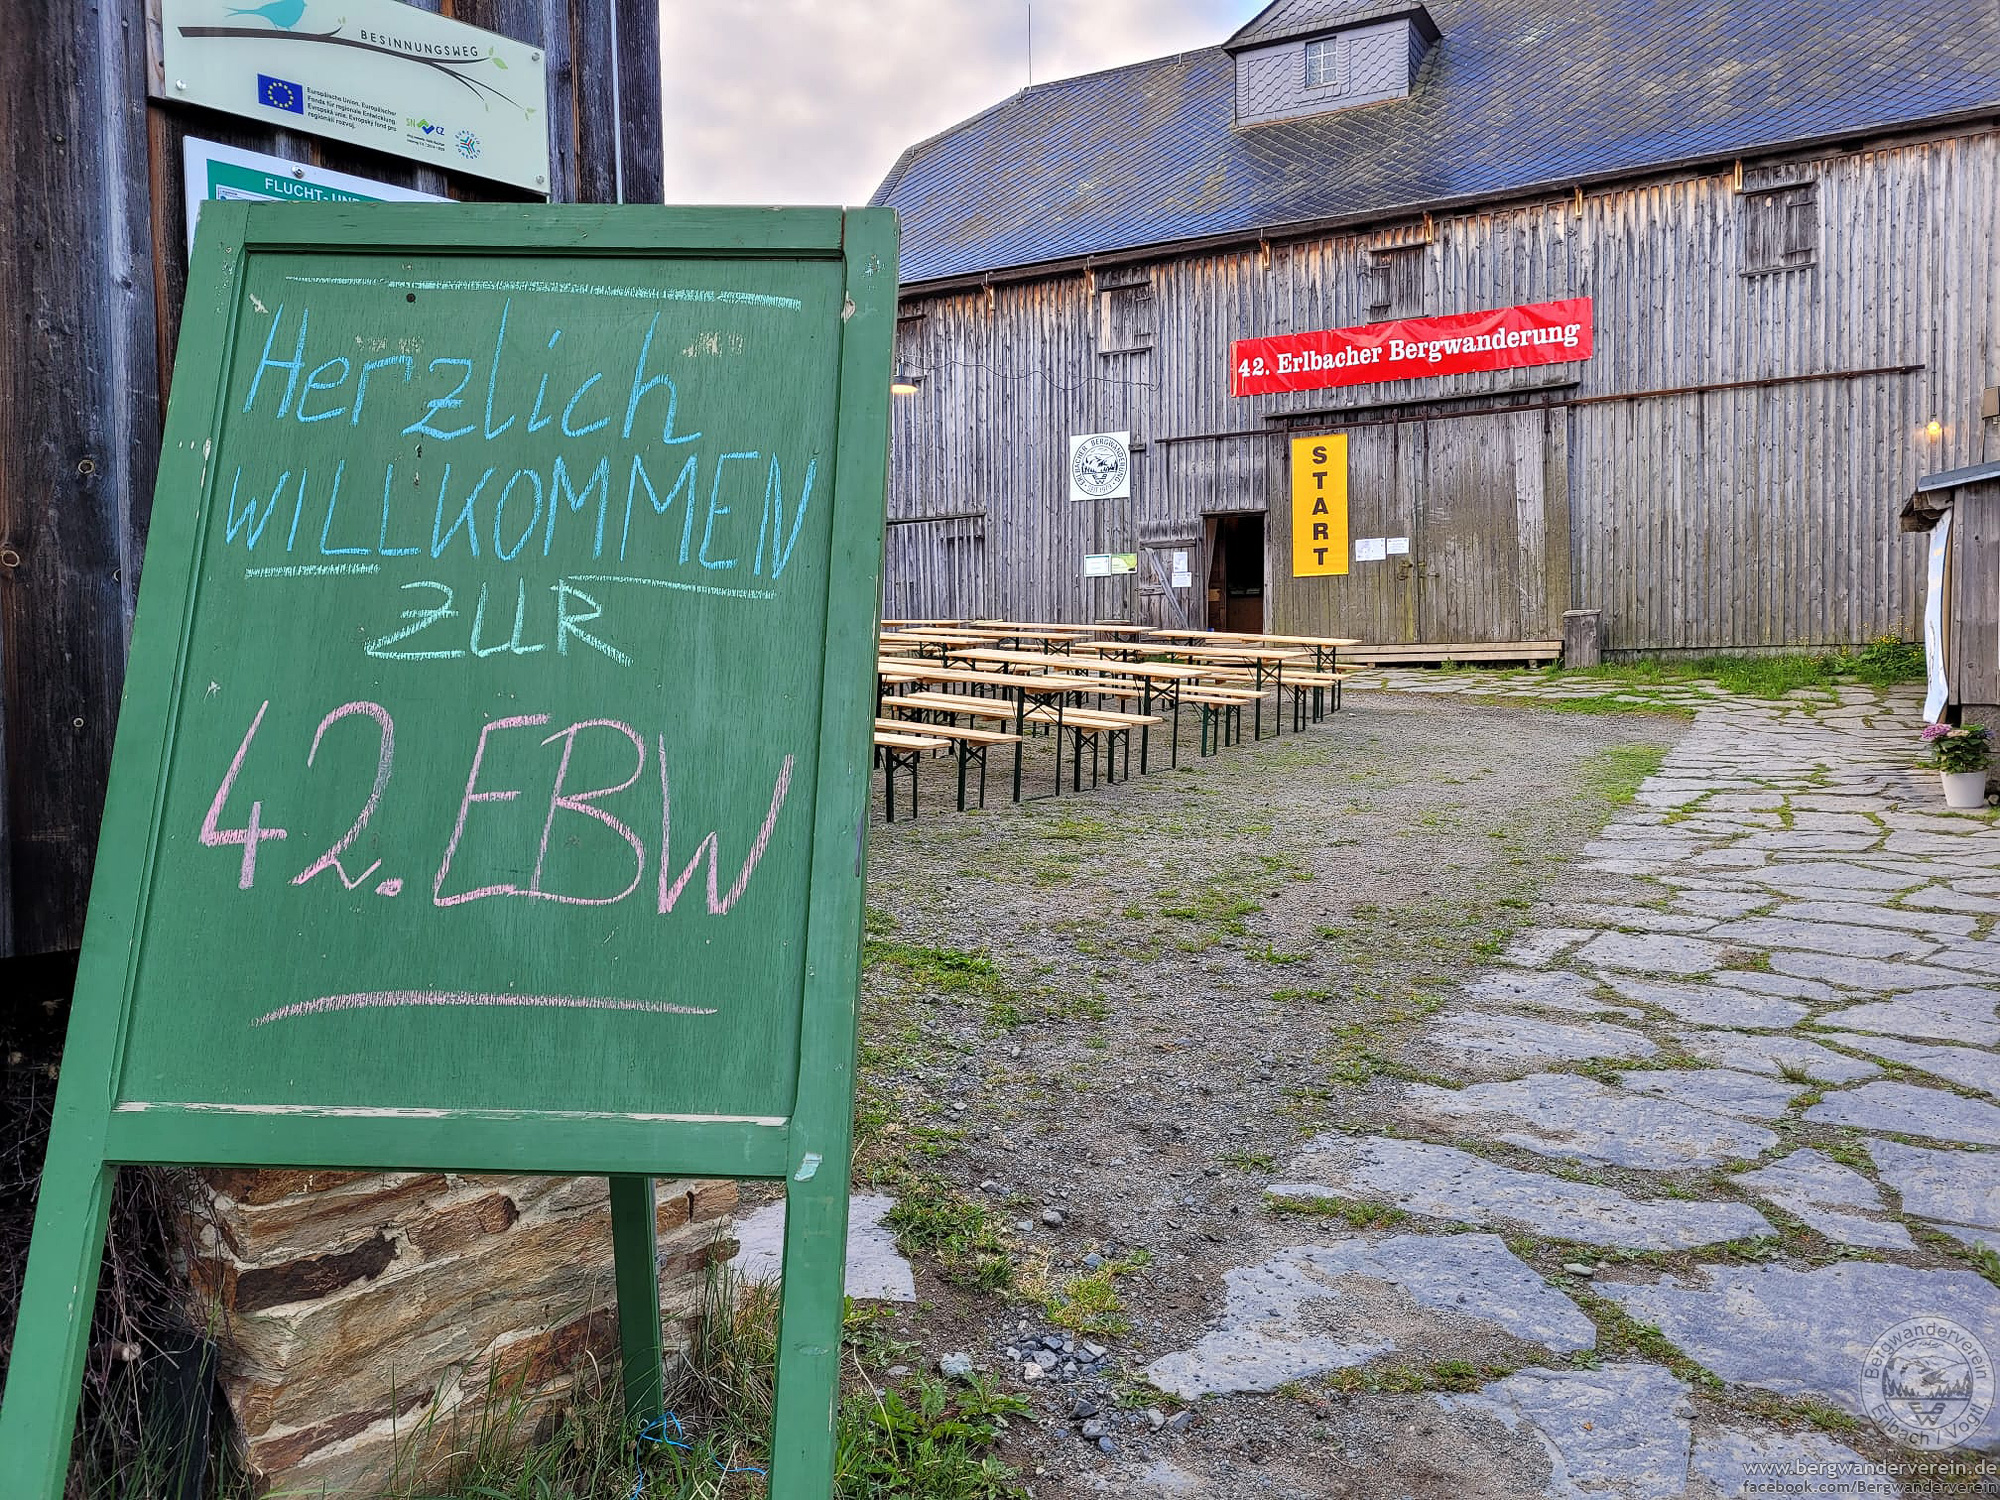 BESINNUNGSWEG
Europäische Union. Europäischer
Fonds für regionale Entwicklung.
Evropská unie. Evropský fond pro
regionální rozvoj.
SN CZ
FLUCHT- UND
Herzlich
WILLKOMMEN
ZUR
42. EBW
42. Erlbacher Bergwanderung
ERLBACHER BERGWANDERUNG
START
Bergwanderverein
Erlbach / Vogtl.
www.bergwanderverein.de
facebook.com/Bergwanderverein